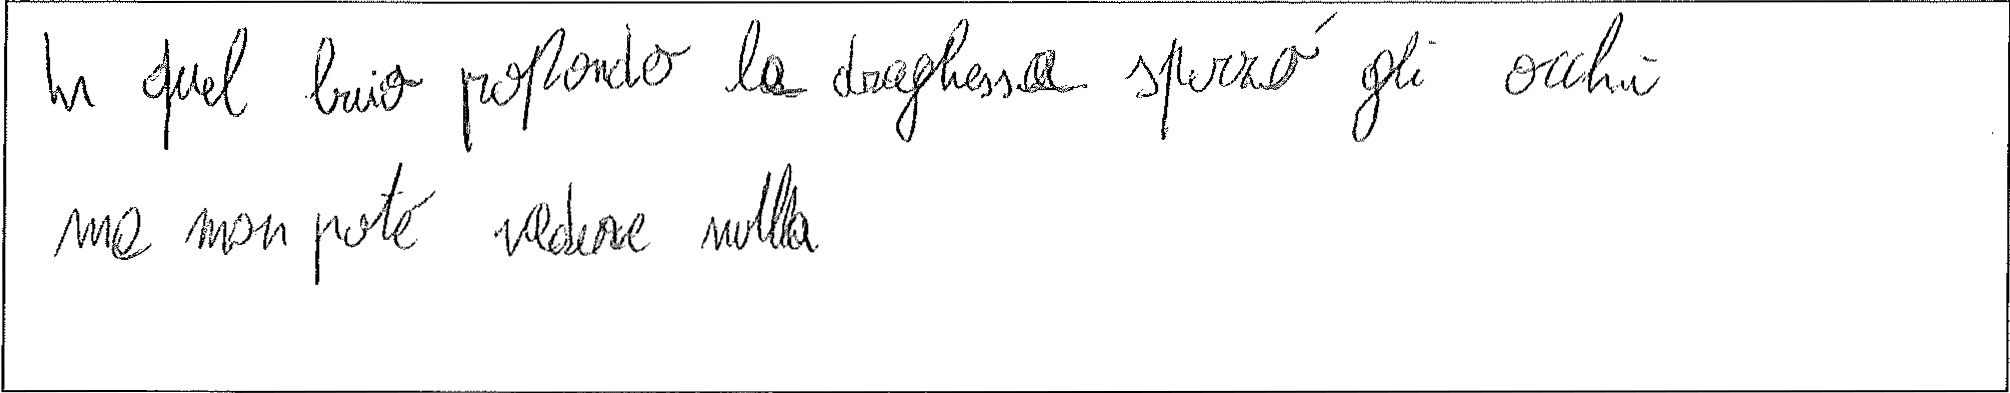 In quel buio profondo la draghessa sperzó gli occhii
ma non poté vedere nulla